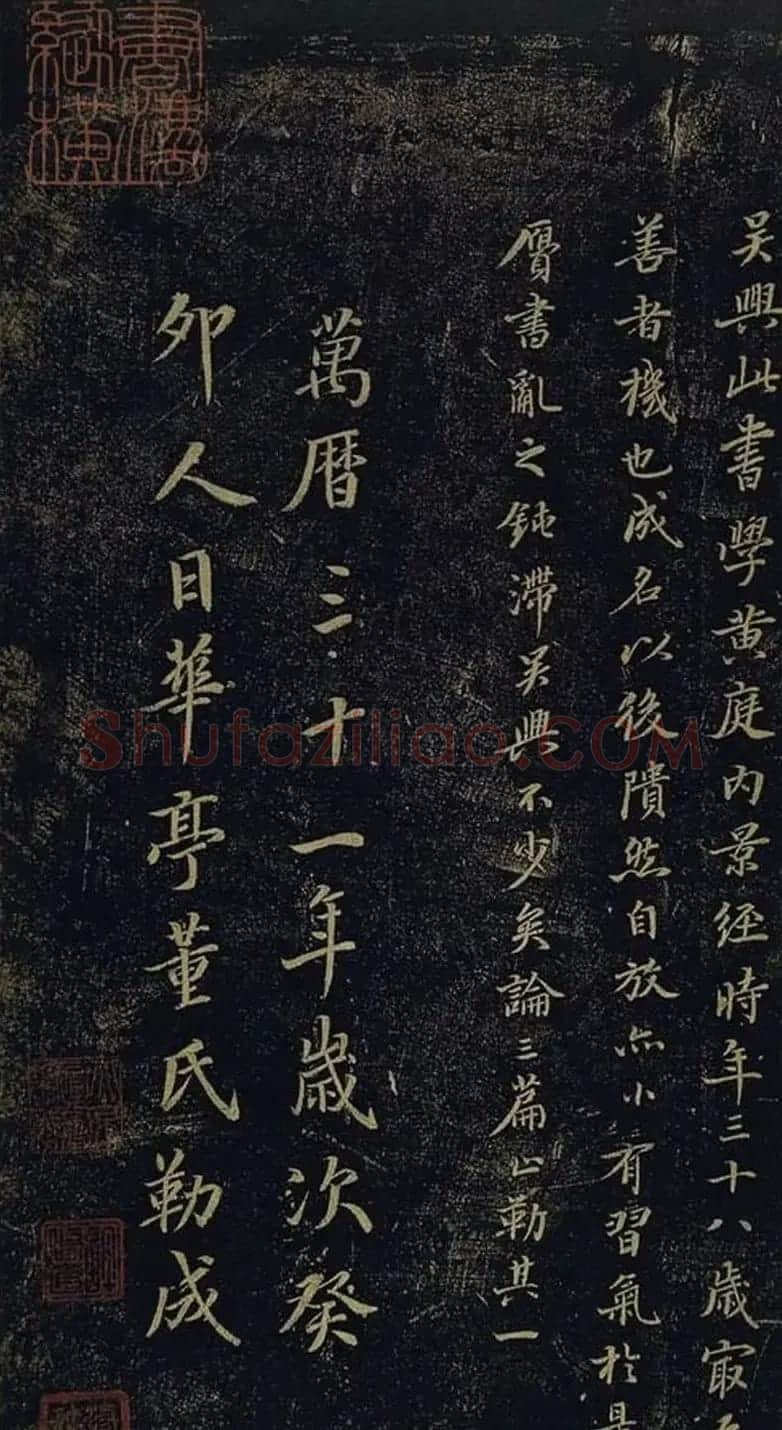 吴興此書學黄庭内景經時年三十八歲㝡
善者機也成名以後隤然自放亦小有習氣於是
贗書亂之鈍滯吴興不少矣論三篇止勒其一
萬曆三十一年歲次癸
卯人日華亭董氏勒成
Shufaziliao.COM